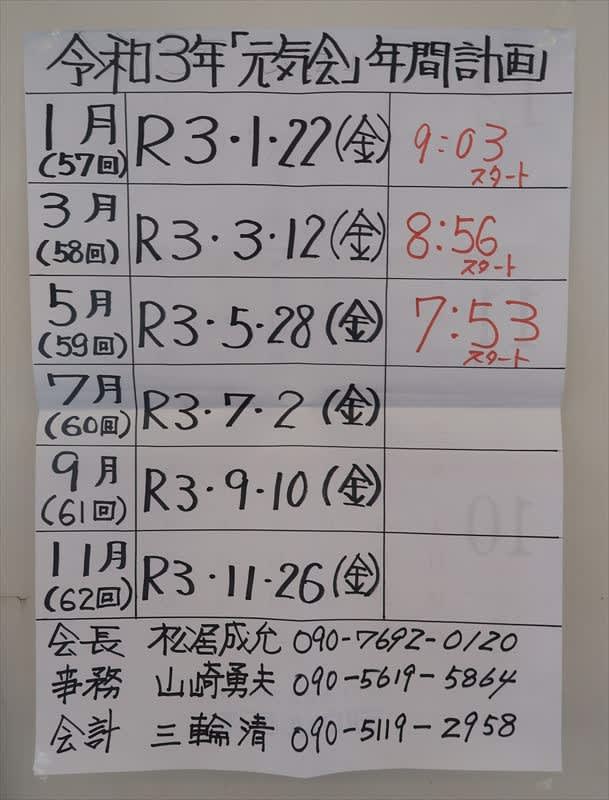 令和3年「元気会」年間計画
1月 R3・1・22(金) 9:03
(57回) スタート
3月 R3・3・12(金) 8:56
(58回) スタート
5月 R3・5・28(金) 7:53
(59回) スタート
7月 R3・7・2(金)
(60回)
9月 R3・9・10(金)
(61回)
11月 R3・11・26(金)
(62回)
会長 松居成允 090-7692-0120
事務 山崎勇夫 090-5619-5864
会計 三輪清 090-5119-2958